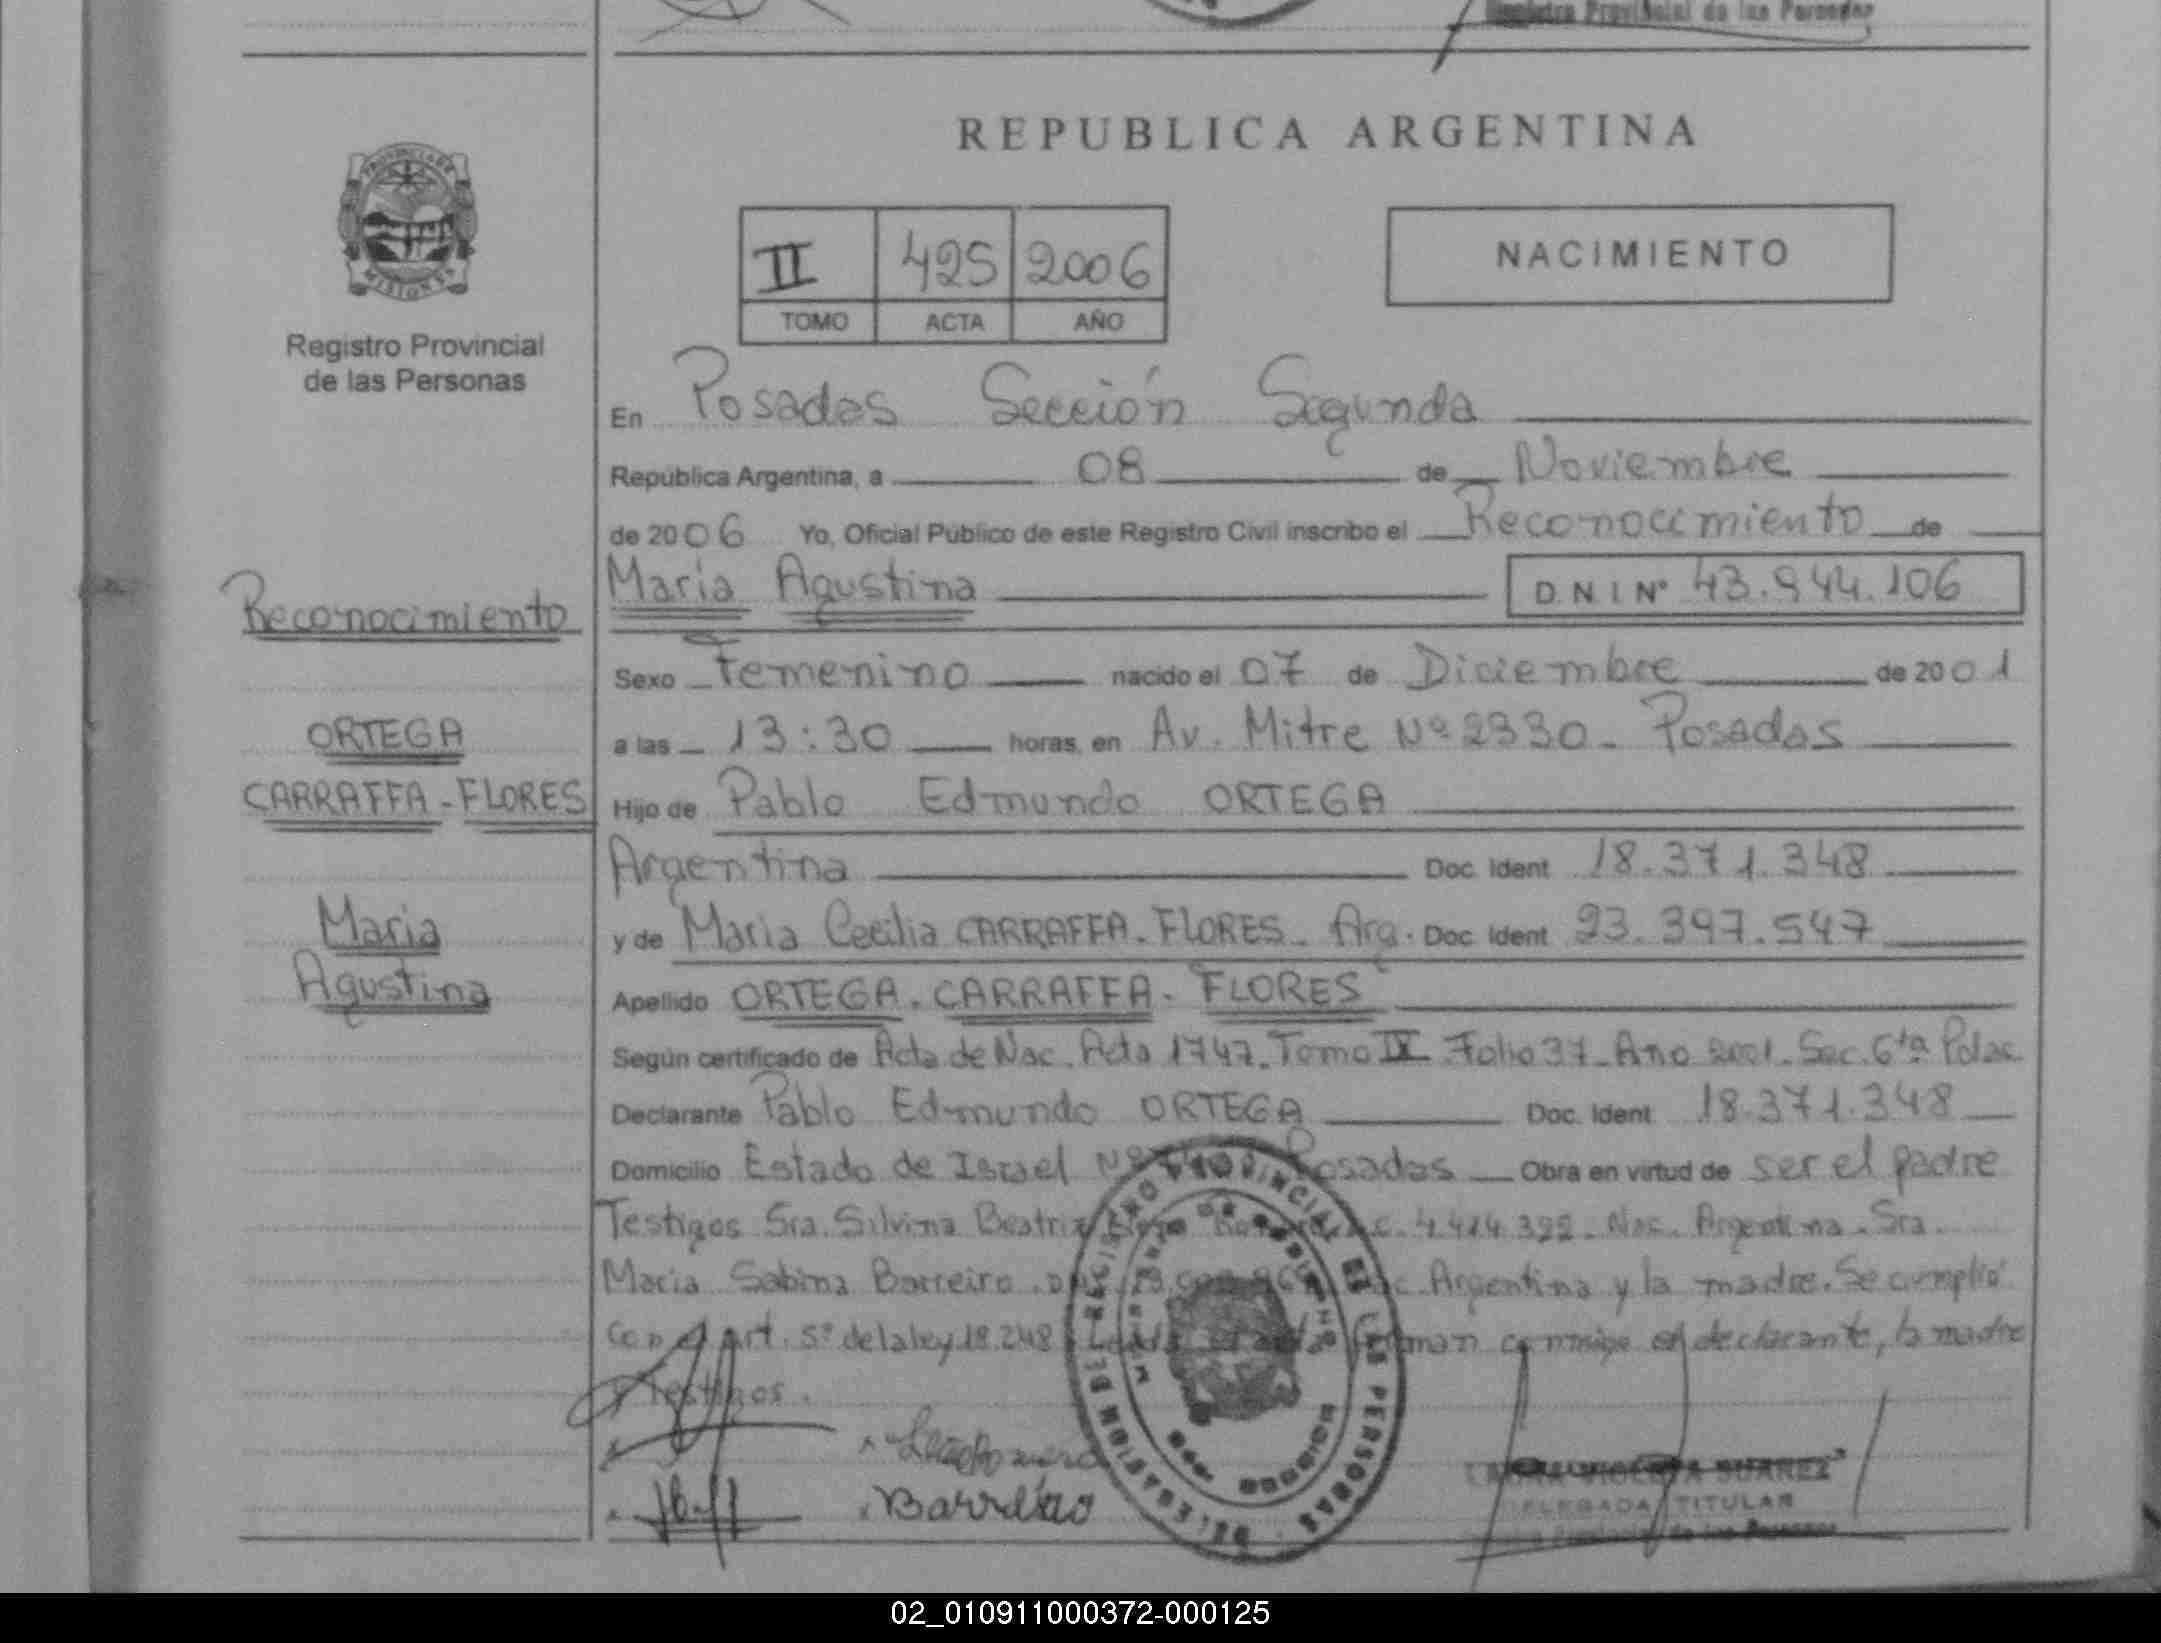 Registro Provincial de las Personas
REPUBLICA ARGENTINA
PROVINCIA DE
MISIONES
Registro Provincial
de las Personas
II 425 2006
TOMO ACTA AÑO
NACIMIENTO
En Posadas Sección Segunda
República Argentina, a 08 de Noviembre
de 2006 Yo, Oficial Público de este Registro Civil inscribo el Reconocimiento de
María Agustina D.N.I Nº 43.944.106
Sexo Femenino nacido el 07 de Diciembre de 2001
a las 13:30 horas, en Av. Mitre Nº 2330. Posadas
Hijo de Pablo Edmundo ORTEGA
Argentina Doc. Ident. 18.371.348
y de Maria Cecilia CARRAFFA-FLORES. Arg. Doc. Ident. 23.397.547
Apellido ORTEGA. CARRAFFA-FLORES
Según certificado de Acta de Nac. Acta 1747. Tomo IX Folio 37. Año 2001. Sec. 6ta
Declarante Pablo Edmundo ORTEGA Doc. Ident. 18.371.348
Domicilio Estado de Israel Nº Posadas Obra en virtud de ser el padre
Testigos Sra. Silvina Beatriz 4.414.392. Nac. Argentina. Sra.
Maria Sabina Barreiro. Argentina y la madre. Se cumplió
con el art. 5º de la ley 18.248. Leída el acta firman conmigo el declarante, la madre
y testigos.
Reconocimiento
ORTEGA
CARRAFFA-FLORES
Maria
Agustina
Barreiro
REGISTRO PROVINCIAL DE LAS PERSONAS
SUAREZ
DELEGADA TITULAR
Registro Provincial de las Personas
02_010911000372-000125